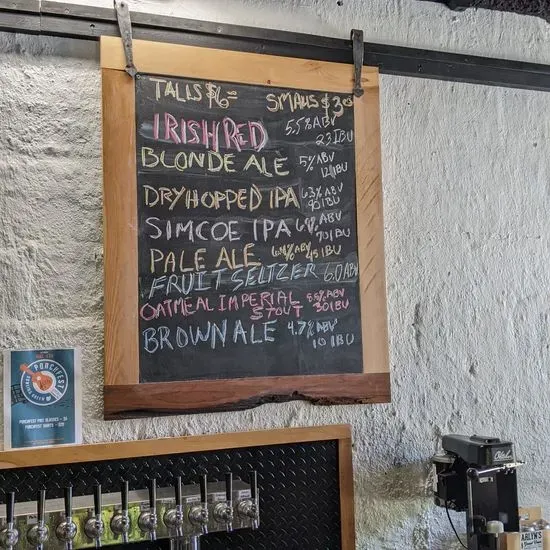 TALLS $6= SMALLS $3
IRISH RED 5.5% ABV
23 IBU
BLONDE ALE 5% ABV
12 IBU
DRY HOPPED IPA 6.3% ABV
IBU
SIMCOE IPA ABV
70 IBU
PALE ALE ABV
45 IBU
FRUIT SELTZER 6.0 ABV
OATMEAL IMPERIAL ABV
STOUT 30 IBU
BROWN ALE 4.7% ABV
10 IBU
PORCHFEST